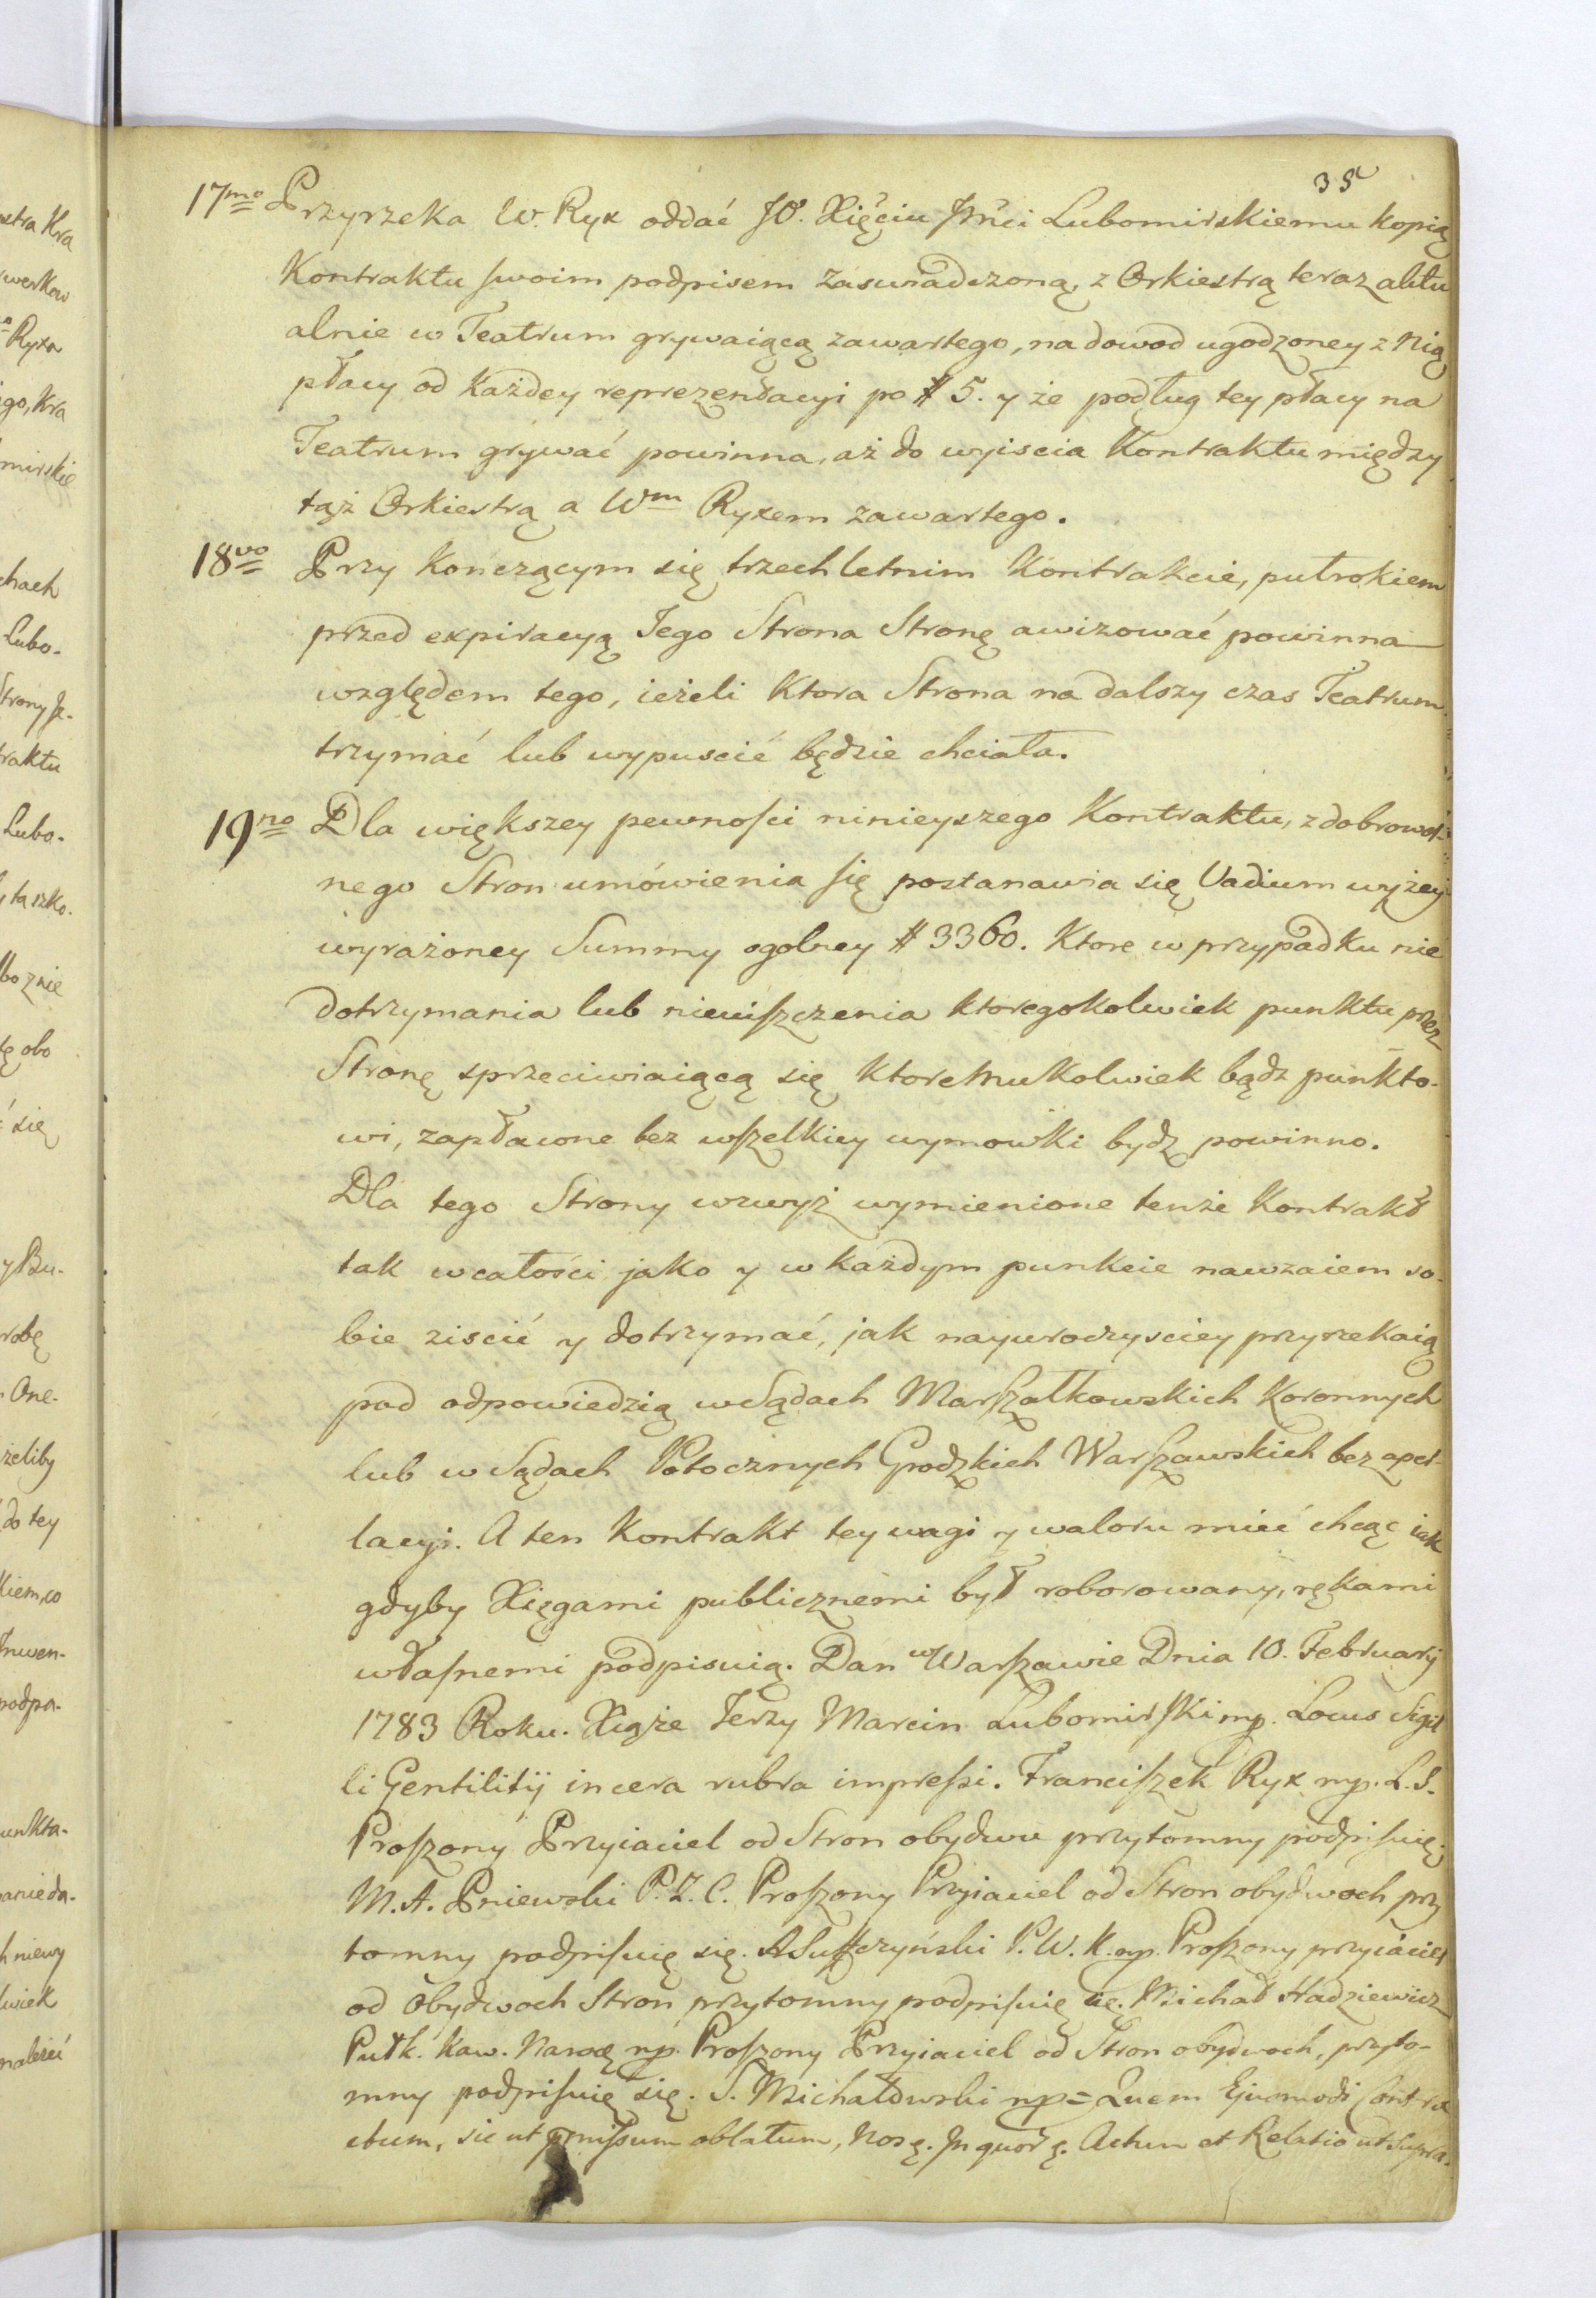 35
17mo Przyrzeka W. Ryx oddać JO. Xięciu Jmci Lubomirskiemu kopią
Kontraktu swoim podpisem zaswiadczoną, z Orkiestrą teraz aktu
alnie w Teatrum grywaiącą zawartego, na dowod ugodzoney z Nią
płacy od każdey reprezentacyi po # 5. y że podług tey płacy na
Teatrum grywać powinna, aż do wyiscia Kontraktu między
tąż Orkiestrą a Wm Ryxem zawartego.
18vo Przy kończącym się trzechletnim Kontrakcie, pułrokiem
przed expiracyą Jego Strona Stronę awizować powinna
względem tego, ieżeli ktora Strona na dalszy czas Teatrum
trzymać lub wypuscić będzie chciała.
19no Dla większey pewnosci ninieyszego Kontraktu, z dobrowol-
nego Stron umówienia się postanawia się Vadium wyżey
wyrażoney Summy ogolney # 3360. Ktore w przypadku nie
dotrzymania lub nieuiszczenia ktoregokolwiek punktu przez
Stronę sprzeciwiaiącą się ktoremukolwiek bądz punkto-
wi, zapłacone bez wszelkiey wymowki bydz powinno.
Dla tego Strony wzwyż wymienione tenże Kontrakt
tak w całości jako y w każdym punkcie nawzaiem so-
bie ziscić y dotrzymać, jak nayuroczysciey przyrzekaią
pod odpowiedzią w Sądach Marszałkowskich Koronnych
lub w Sądach Potocznych Grodzkich Warszawskich bez apel-
lacyi. A ten Kontrakt tey wagi y waloru mieć chcąc iak
gdyby Xięgami publicznemi był roborowany, rękami
własnemi podpisuią. Dan w Warszawie Dnia 10. Februarij
1783 Roku. Xiąże Jerzy Marcin Lubomirski mp. Locus Sigil
li Gentilitij in cera rubra impressi. Franciszek Ryx mp. L.S.
Proszony Przyiaciel od Stron obydwu przytomny podpisuię.
M. A. Pniewski P. Z. C. Proszony Przyiaciel od Stron obydwoch przy
tomny podpisuię się. A Suffczyński P. W. K. mp. Proszony przyiaciel
od Obydwoch Stron przytomny podpisuię się. Michał Hadziewicz
Pułk. Kaw. Narod. mp. Proszony Przyiaciel od Stron obydwoch, przyto-
mny podpisuię się. S. Michałowski mp = Quem Ejusmodi Contra
ctum, sic ut pmissum oblatum, Nosq. In quor. q. Actum et Relatio ut Supra.